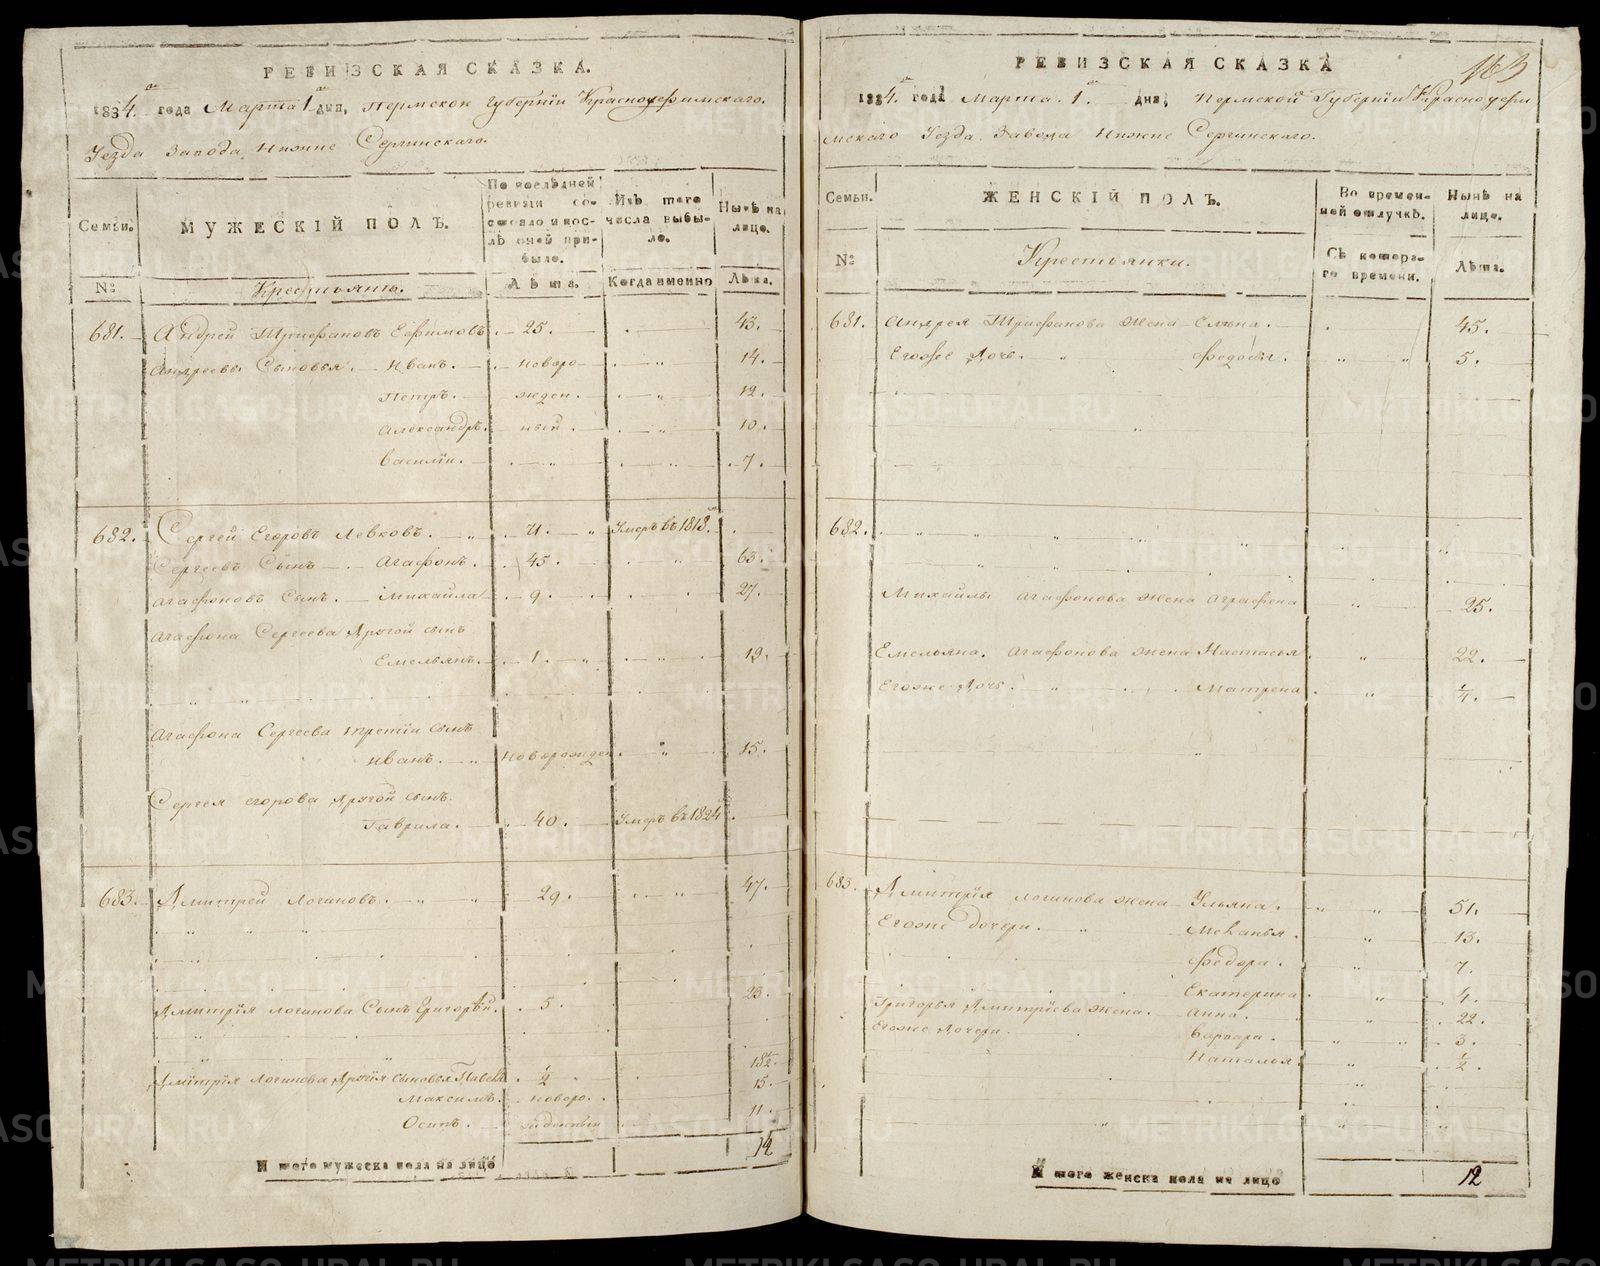 РЕВИЗСКАЯ СКАЗКА.
1834. го года Марта 1 го дня, Пермской губернiи Красноуфимскаго.
Уезда Завода Нижне Сергинскаго.
Семьи.
МУЖЕСКIЙ ПОЛЪ.
По последней ревизiи состояло и послѣ оной прибыло.
Изъ того числа выбыло.
Нынѣ на лицо.
№
Крестьяне.
Лѣта.
Когда именно
Лѣта.
681. Андрей Трифановъ Ефимовъ 25. 43.
Андреевы Сыновья. Иванъ. новоро 14.
Петръ. жден. 12.
Александръ. ный. 10.
Василiи. 7.
682. Сергей Егоровъ Левковъ. 71. Умеръ въ 1818.
Сергеевъ Сынъ Агафонъ. 45. 63.
Агафоновъ Сынъ. Михаила 9. 27.
Агафона Сергеева другой сынъ
Емельянъ. 1. 19.
Агафона Сергеева третiи сынъ
Иванъ. Новорожден. 15.
Сергея егорова другой сынъ.
Гаврила. 40. Умеръ въ 1824
683. Дмитрей Логиновъ. 29. 47.
Дмитрiя логинова Сынъ Григорѣй. 5. 23.
Дмитрiя Логинова другiя сыновья Павелъ 1/2 18 1/2.
Максимъ. новоро. 15.
Осипъ. жденныи 11.
И того мужеска пола на лицо 14
РЕВИЗСКАЯ СКАЗКА
163
1834. го года Марта. 1. го дня, Пермской Губернiи Красноуфи
мскаго Уезда Завода Нижне Сергинскаго.
Семьи.
ЖЕНСКIЙ ПОЛЪ.
Во временной отлучкѣ.
Нынѣ на лицо.
№
Крестьянки.
Съ котораго времени.
Лѣта.
681. Андрея Трифанова жена Елена. 45.
Егоже дочь. Федосья. 5.
682.
Михайлы Агафонова жена Аграфена 25.
Емельяна. Агафонова жена Настасья 22.
Егоже дочь. Матрена 1/4.
683. Дмитрiя логинова жена Ульяна. 51.
Егоже дочери. Меланья. 13.
Федора. 7.
Екатерина 4.
Григорья Дмитрiева жена. Анна. 22.
Егоже дочери. Варвара. 3.
Наталья 1/2.
И того женска пола на лицо 12
METRIKI.GASO-URAL.RU